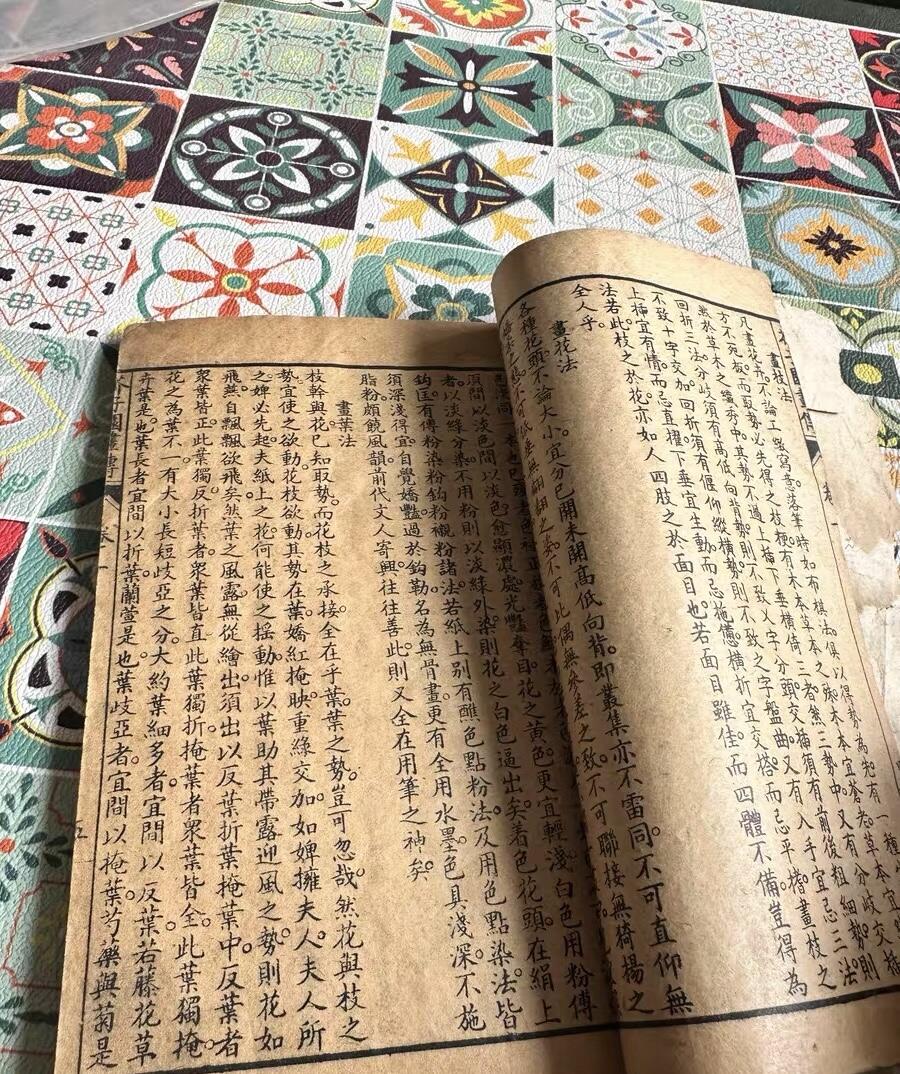 畫枝法
凡畫花卉不論工緻寫意落筆時如布棋法俱以得勢為先有一種
方不宛板而取勢必先得之枝梗有木本草本之殊木本宜蒼老草本宜
然於草木之纖秀中其勢不過上插下垂橫倚三者然三勢中又有分歧交插
回折三法分歧須有高低向背勢則不致乂字分頭交插須有前後粗細勢則
不致十字交加回折須有偃仰縱橫勢則不致之字盤曲又有入手宜忌三法
上插宜有情而忌直擢下垂宜生動而忌拖憊橫折宜交搭而忌平擔畫枝之
法若此枝之於花亦如人四肢之於面目也若面目雖佳而四體不備豈得為
全人乎
畫花法
各種花頭不論大小宜分已開未開高低向背即叢集亦不雷同不可直仰無
不可低垂無翩翻之姿不可比偶無參差之致不可聯接無綺揚之
須間以淡色間以淡色愈顯濃處光艷奪目花之黃色更宜輕淺白色用粉傅
者以淡綠分染不用粉則以淡綠外染則花之白色逼出矣着色花頭在絹上
鈎匡有傅粉染粉鈎粉襯粉諸法若紙上別有蘸色點粉法及用色點染法皆
須深淺得宜自覺嬌豔過於鈎勒名為無骨畫更有全用水墨色具淺深不施
脂粉頗饒風韻前代文人寄興往往善此則又全在用筆之神矣
畫葉法
枝幹與花已知取勢而花枝之承接全在乎葉葉之勢豈可忽哉然花與枝之
勢宜使之欲動花枝欲動其勢在葉嬌紅掩映重綠交加如婢擁夫人夫人所
之婢必先起夫紙上之花何能使之搖動惟以葉助其帶露迎風之勢則花如
飛燕自飄飄欲飛矣然葉之風露無從繪出須出以反葉折葉掩葉中反葉者
衆葉皆正此葉獨反折葉者衆葉皆直此葉獨折掩葉者衆葉皆全此葉獨掩
花之為葉不一有大小長短歧亞之分大約葉細多者宜間以反葉若藤花草
卉葉是也葉長者宜間以折葉蘭萱是也葉歧亞者宜間以掩葉芍藥與菊是
子園畫傳
卷一